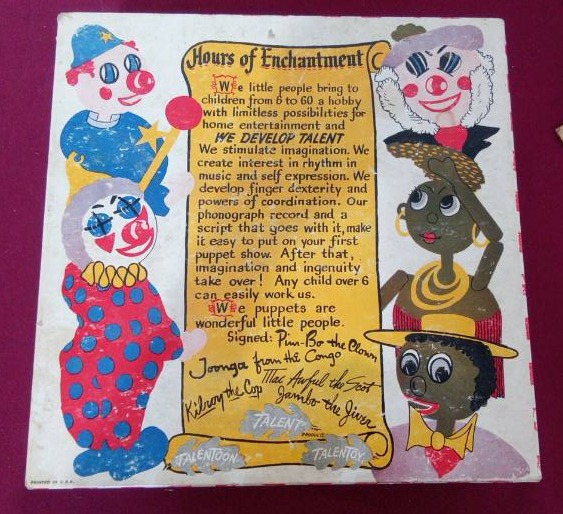 Hours of Enchantment
We little people bring to
children from 6 to 60 a hobby
with limitless possibilities for
home entertainment and
WE DEVELOP TALENT
We stimulate imagination. We
create interest in rhythm in
music and self expression. We
develop finger dexterity and
powers of coordination. Our
phonograph record and a
script that goes with it, make
it easy to put on your first
puppet show. After that,
imagination and ingenuity
take over! Any child over 6
can easily work us.
We puppets are
wonderful little people.
Signed: Pim-Bo the Clown
Joonga from the Congo
Mac Awful the Scot
Kilroy the Cop
Jambo the Jiver
TALENT
PRODUCTS
TALENTOON
TALENTOY
PRINTED IN U.S.A.